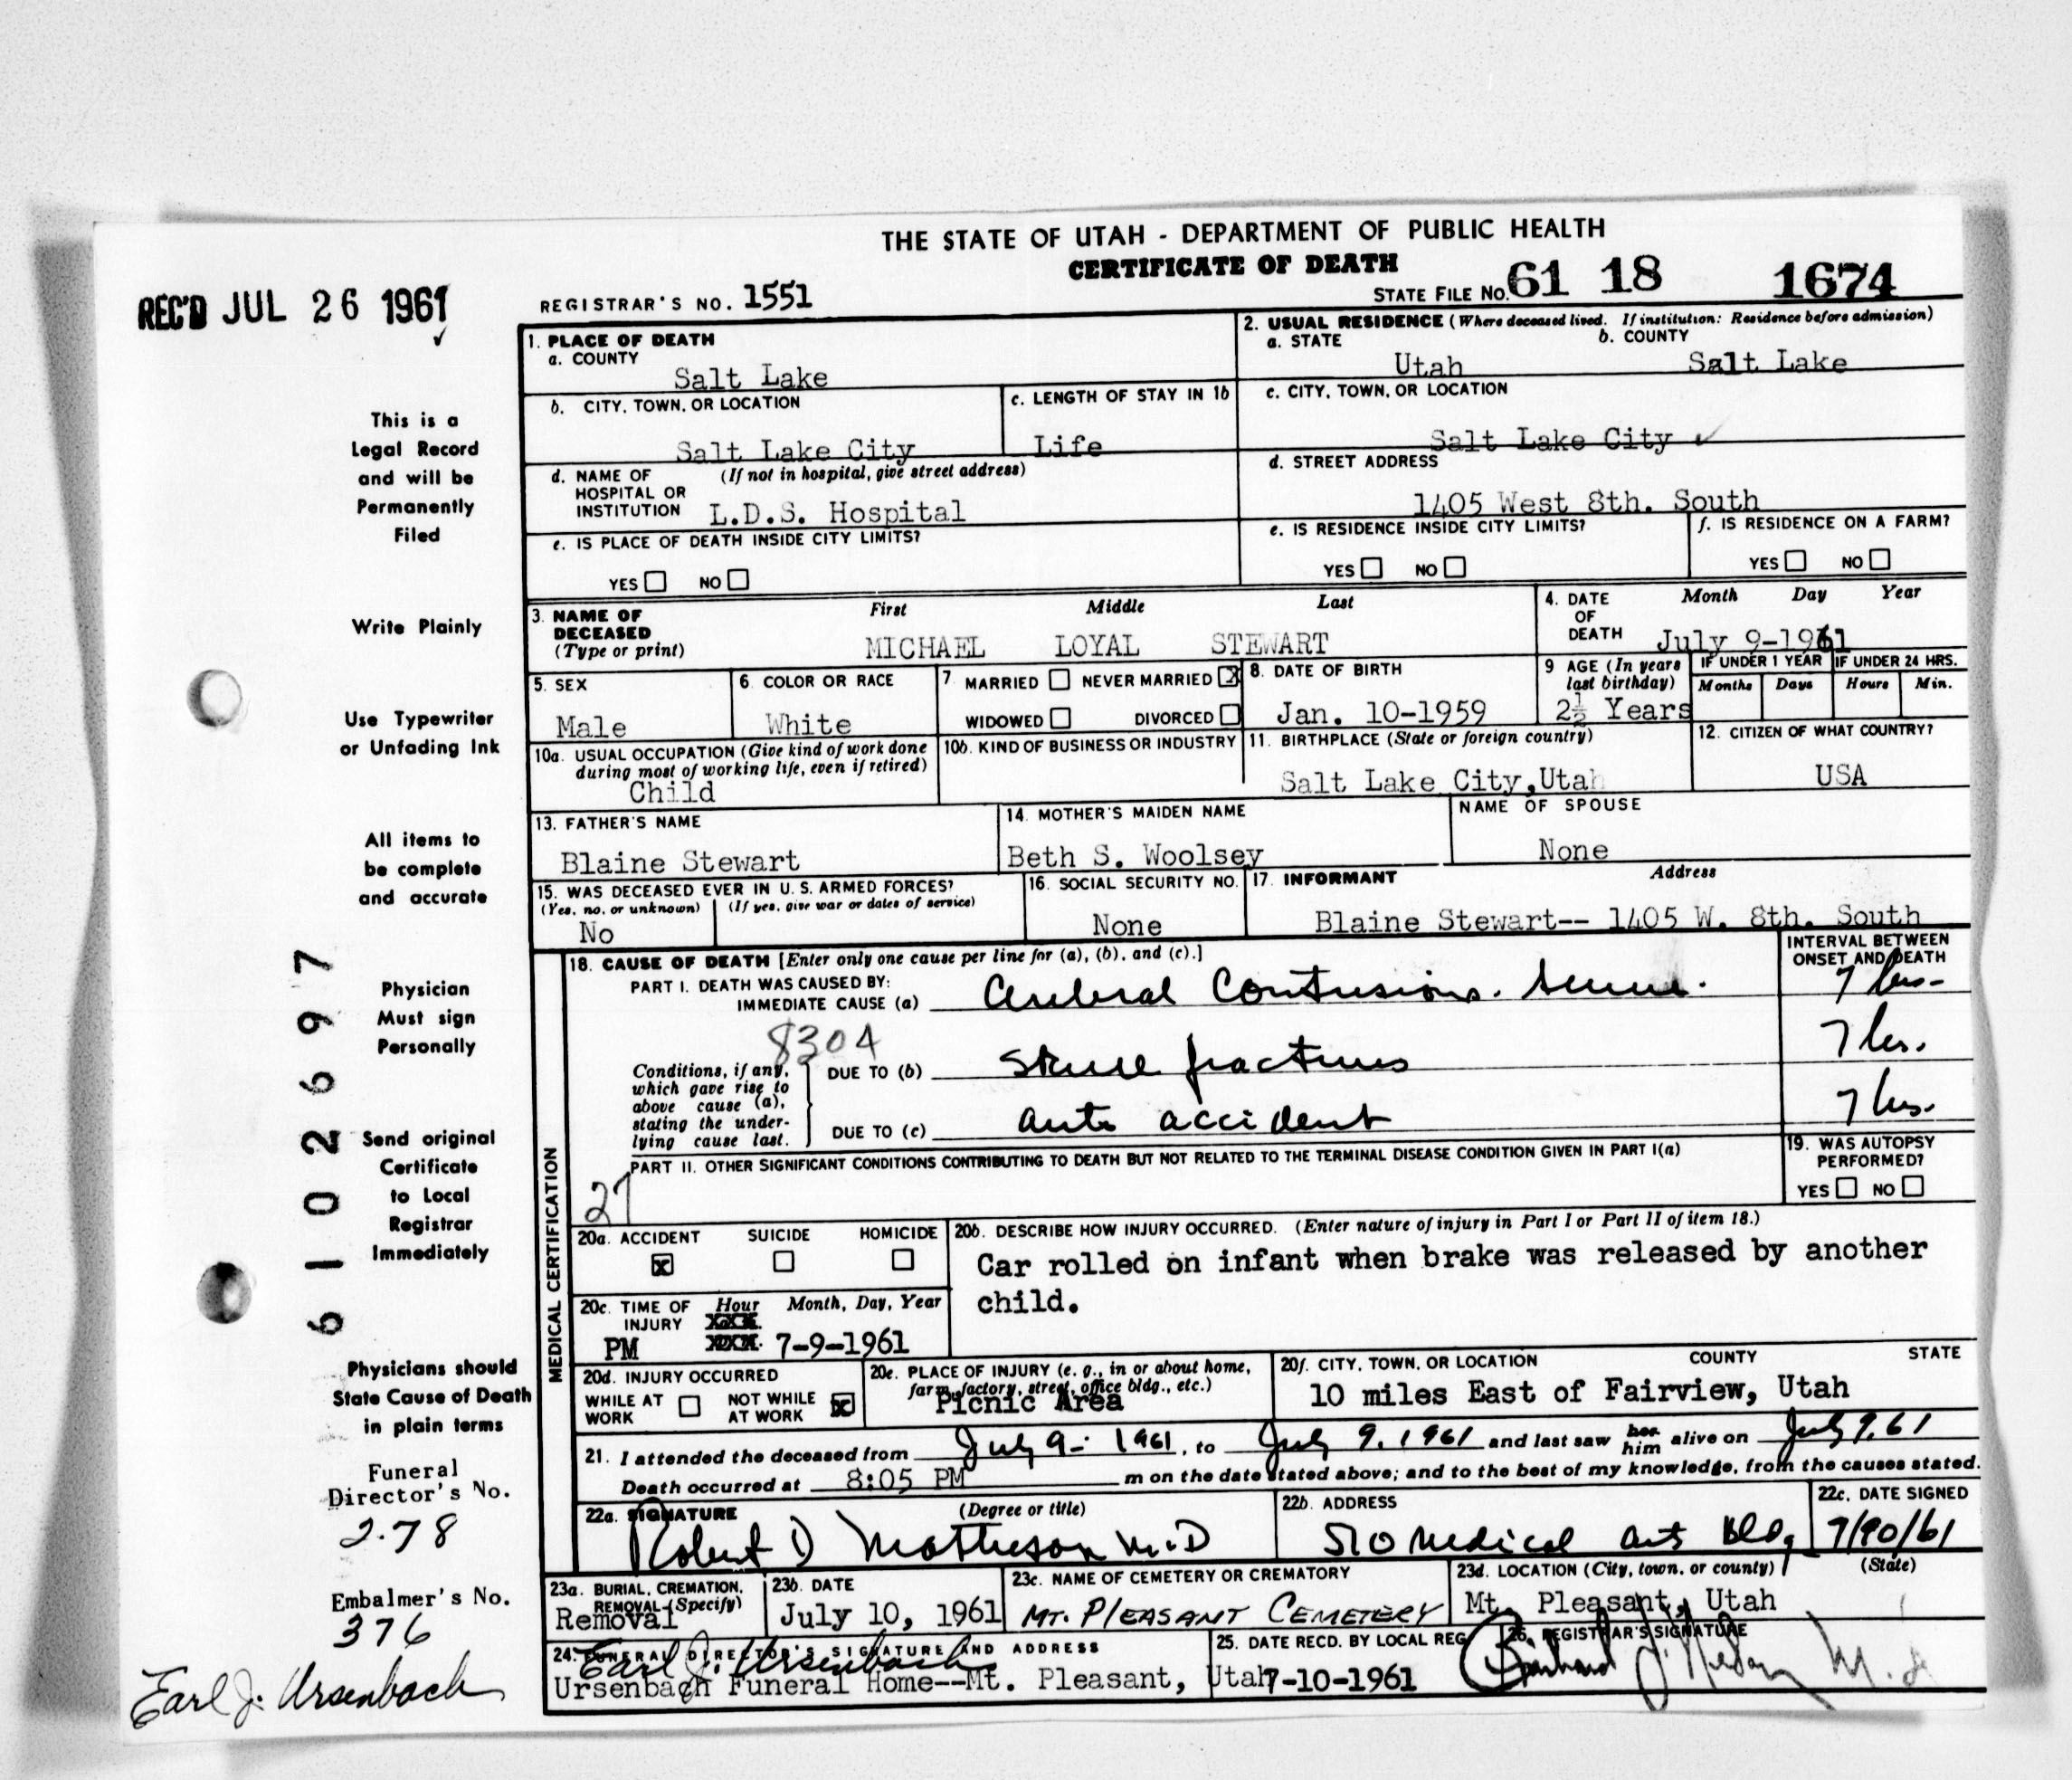 THE STATE OF UTAH - DEPARTMENT OF PUBLIC HEALTH
CERTIFICATE OF DEATH
REC'D JUL 26 1961
REGISTRAR'S NO. 1551
STATE FILE NO. 61 18 1674
This is a
Legal Record
and will be
Permanently
Filed
Write Plainly
Use Typewriter
or Unfading Ink
All items to
be complete
and accurate
Physician
Must sign
Personally
Send original
Certificate
to Local
Registrar
Immediately
Physicians should
State Cause of Death
in plain terms
Funeral
Director's No.
278
Embalmer's No.
376
Earl J. Ursenbach
6102697
1. PLACE OF DEATH
a. COUNTY
Salt Lake
2. USUAL RESIDENCE (Where deceased lived. If institution: Residence before admission)
a. STATE b. COUNTY
Utah Salt Lake
b. CITY, TOWN, OR LOCATION
Salt Lake City
c. LENGTH OF STAY IN 1b
Life
c. CITY, TOWN, OR LOCATION
Salt Lake City ✓
d. NAME OF (If not in hospital, give street address)
HOSPITAL OR
INSTITUTION L.D.S. Hospital
d. STREET ADDRESS
1405 West 8th. South
e. IS PLACE OF DEATH INSIDE CITY LIMITS?
YES NO
e. IS RESIDENCE INSIDE CITY LIMITS?
YES NO
f. IS RESIDENCE ON A FARM?
YES NO
3. NAME OF DECEASED (Type or print)
First Middle Last
MICHAEL LOYAL STEWART
4. DATE OF DEATH
Month Day Year
July 9-1961
5. SEX
Male
6. COLOR OR RACE
White
7. MARRIED NEVER MARRIED X
WIDOWED DIVORCED
8. DATE OF BIRTH
Jan. 10-1959
9 AGE (In years
last birthday)
2½ Years
IF UNDER 1 YEAR IF UNDER 24 HRS.
Months Days Hours Min.
10a. USUAL OCCUPATION (Give kind of work done
during most of working life, even if retired)
Child
10b. KIND OF BUSINESS OR INDUSTRY
11. BIRTHPLACE (State or foreign country)
Salt Lake City, Utah
12. CITIZEN OF WHAT COUNTRY?
USA
13. FATHER'S NAME
Blaine Stewart
14. MOTHER'S MAIDEN NAME
Beth S. Woolsey
NAME OF SPOUSE
None
15. WAS DECEASED EVER IN U.S. ARMED FORCES?
(Yes, no, or unknown) (If yes, give war or dates of service)
No
16. SOCIAL SECURITY NO.
None
17. INFORMANT Address
Blaine Stewart-- 1405 W. 8th. South
MEDICAL CERTIFICATION
18. CAUSE OF DEATH [Enter only one cause per line for (a), (b), and (c).]
INTERVAL BETWEEN
ONSET AND DEATH
PART I. DEATH WAS CAUSED BY:
IMMEDIATE CAUSE (a) Cerebral Contusions. Severe. 7 hrs.
8304
Conditions, if any,
which gave rise to
above cause (a),
stating the under-
lying cause last.
DUE TO (b) Skull fractures 7 hrs.
DUE TO (c) auto accident 7 hrs.
PART II. OTHER SIGNIFICANT CONDITIONS CONTRIBUTING TO DEATH BUT NOT RELATED TO THE TERMINAL DISEASE CONDITION GIVEN IN PART I(a)
27
19. WAS AUTOPSY
PERFORMED?
YES NO
20a. ACCIDENT SUICIDE HOMICIDE
X
20b. DESCRIBE HOW INJURY OCCURRED. (Enter nature of injury in Part I or Part II of item 18.)
Car rolled on infant when brake was released by another
child.
20c. TIME OF INJURY Hour Month, Day, Year
PM 7-9-1961
20d. INJURY OCCURRED
WHILE AT WORK NOT WHILE AT WORK X
20e. PLACE OF INJURY (e. g., in or about home,
farm, factory, street, office bldg., etc.)
Picnic Area
20f. CITY, TOWN, OR LOCATION COUNTY STATE
10 miles East of Fairview, Utah
21. I attended the deceased from July 9- 1961, to July 9, 1961 and last saw her him alive on July 9, 61
Death occurred at 8:05 PM m on the date stated above; and to the best of my knowledge, from the causes stated.
22a. SIGNATURE (Degree or title)
Robert D Matheson M.D
22b. ADDRESS
510 Medical Arts Bldg
22c. DATE SIGNED
23a. BURIAL, CREMATION,
REMOVAL (Specify)
Removal
23b. DATE
July 10, 1961
23c. NAME OF CEMETERY OR CREMATORY
MT. PLEASANT CEMETERY
23d. LOCATION (City, town, or county) (State)
Mt. Pleasant, Utah
24. FUNERAL DIRECTOR'S SIGNATURE AND ADDRESS
Earl J. Ursenbach
Ursenbach Funeral Home--Mt. Pleasant, Utah
25. DATE RECD. BY LOCAL REG.
7-10-1961
26. REGISTRAR'S SIGNATURE